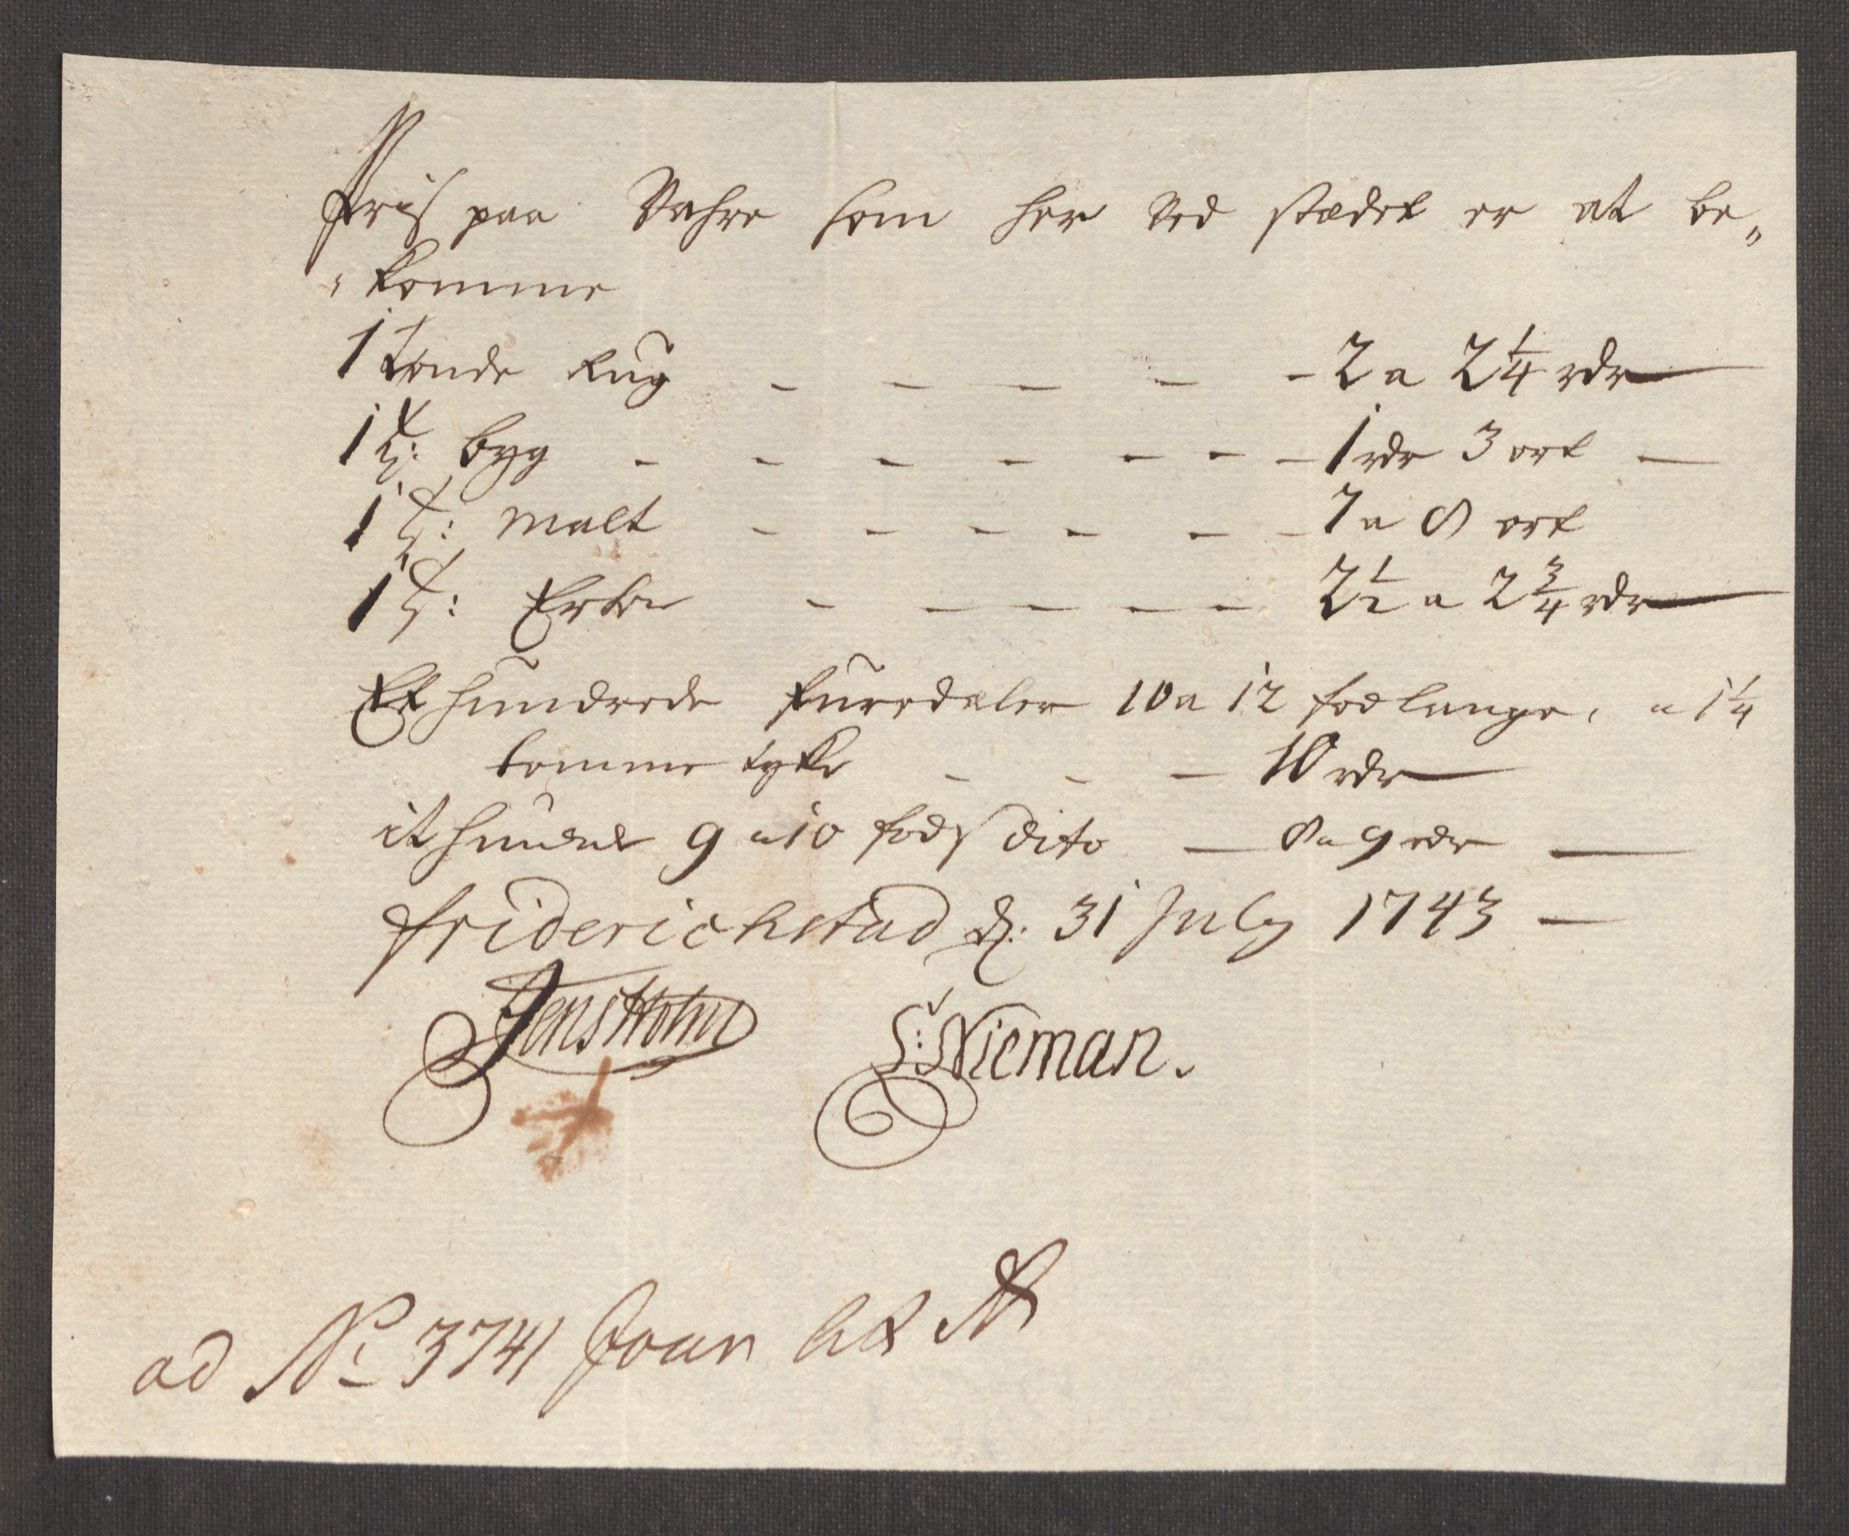 Priis paa Vahre som her ved stædet er at be„
„komme
1 tønde Rug – – – – – 2 a 2 1/4 rdr
1 t: byg – – – – – – – 1 rdr 3 ort –
1 t: malt – – – – – – 7 a 8 ort
1 t: Erter – – – – – 2 1/2 a 2 3/4 rdr
Et hundrede furedæler 10 a 12 fod lange, a 1 1/4
tomme tyke – – – 10 rdr
it hundrede 9 a 10 fods dito – 8 a 9 rdr –
friderichstad d: 31 July 1743 –
Jens Holm S: Nieman.
ad No 3741